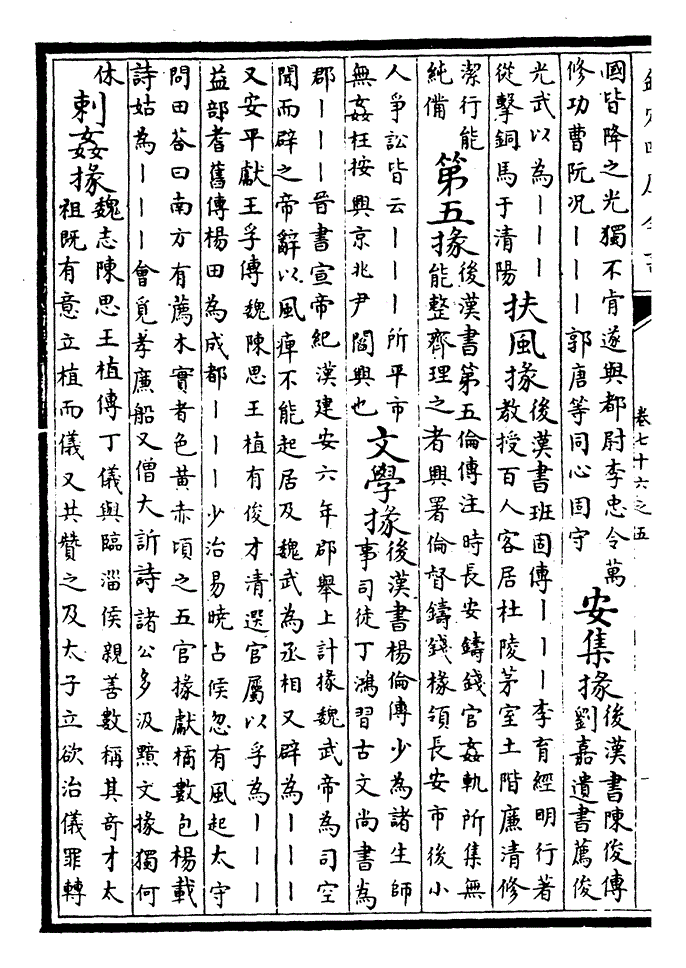 卷七十六之五
國皆降之光獨不肯遂與都尉李忠令萬
修功曹阮况｜｜｜郭唐等同心固守
安集掾
後漢書陳俊傳
劉嘉遺書薦俊
光武以為｜｜｜
從擊銅馬于清陽
扶風掾
後漢書班固傳｜｜｜李育經明行著
教授百人客居杜陵茅室土階廉清修
潔行能
純備
第五掾
後漢書第五倫傳注時長安鑄錢官姦軌所集無
能整齊理之者興署倫督鑄錢掾領長安市後小
人爭訟皆云｜｜｜所平市
無姦枉按興京兆尹閻興也
文學掾
後漢書楊倫傳少為諸生師
事司徒丁鴻習古文尚書為
郡｜｜｜晉書宣帝紀漢建安六年郡舉上計掾魏武帝為司空
聞而辟之帝辭以風痺不能起居及魏武為丞相又辟為｜｜｜
又安平獻王孚傳魏陳思王植有俊才清選官屬以孚為｜｜｜
益部耆舊傳楊田為成都｜｜｜少治易曉占候忽有風起太守
問田荅曰南方有薦木實者色黄赤頃之五官掾獻橘數包楊載
詩姑為｜｜｜會覓孝廉船又僧大訢詩諸公多汲黯文掾獨何
休
刺姦掾
魏志陳思王植傳丁儀與臨淄侯親善數稱其奇才太
祖既有意立植而儀又共贊之及太子立欲治儀罪轉